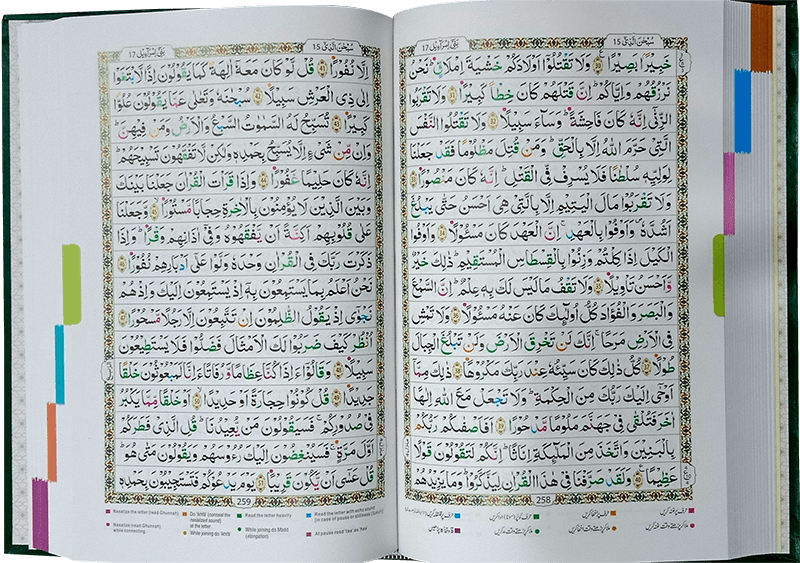 سُبْحٰنَ الَّذِيْٓ 15
بَنِيْٓ اِسْرَآءِيْل 17
خَبِيْرًاۢ بَصِيْرًا ۝٣٠ وَلَا تَقْتُلُوْٓا اَوْلَادَكُمْ خَشْيَةَ اِمْلَاقٍ ؕ نَحْنُ
نَرْزُقُهُمْ وَاِيَّاكُمْ ؕ اِنَّ قَتْلَهُمْ كَانَ خِطْاً كَبِيْرًا ۝٣١ وَلَا تَقْرَبُوا
الزِّنٰٓى اِنَّهٗ كَانَ فَاحِشَةً ؕ وَسَآءَ سَبِيْلًا ۝٣٢ وَلَا تَقْتُلُوا النَّفْسَ
الَّتِيْ حَرَّمَ اللّٰهُ اِلَّا بِالْحَقِّ ؕ وَمَنْ قُتِلَ مَظْلُوْمًا فَقَدْ جَعَلْنَا
لِوَلِيِّهٖ سُلْطٰنًا فَلَا يُسْرِفْ فِّي الْقَتْلِ ؕ اِنَّهٗ كَانَ مَنْصُوْرًا ۝٣٣
وَلَا تَقْرَبُوْا مَالَ الْيَتِيْمِ اِلَّا بِالَّتِيْ هِيَ اَحْسَنُ حَتّٰى يَبْلُغَ
اَشُدَّهٗ ۪ وَاَوْفُوْا بِالْعَهْدِ ۚ اِنَّ الْعَهْدَ كَانَ مَسْـُٔوْلًا ۝٣٤ وَاَوْفُوا
الْكَيْلَ اِذَا كِلْتُمْ وَزِنُوْا بِالْقِسْطَاسِ الْمُسْتَقِيْمِ ؕ ذٰلِكَ خَيْرٌ
وَّاَحْسَنُ تَاْوِيْلًا ۝٣٥ وَلَا تَقْفُ مَا لَيْسَ لَكَ بِهٖ عِلْمٌ ؕ اِنَّ السَّمْعَ
وَالْبَصَرَ وَالْفُؤَادَ كُلُّ اُولٰٓئِكَ كَانَ عَنْهُ مَسْـُٔوْلًا ۝٣٦ وَلَا تَمْشِ
فِي الْاَرْضِ مَرَحًا ۚ اِنَّكَ لَنْ تَخْرِقَ الْاَرْضَ وَلَنْ تَبْلُغَ الْجِبَالَ
طُوْلًا ۝٣٧ كُلُّ ذٰلِكَ كَانَ سَيِّئُهٗ عِنْدَ رَبِّكَ مَكْرُوْهًا ۝٣٨ ذٰلِكَ مِمَّآ
اَوْحٰٓى اِلَيْكَ رَبُّكَ مِنَ الْحِكْمَةِ ؕ وَلَا تَجْعَلْ مَعَ اللّٰهِ اِلٰهًا
اٰخَرَ فَتُلْقٰى فِيْ جَهَنَّمَ مَلُوْمًا مَّدْحُوْرًا ۝٣٩ اَفَاَصْفٰىكُمْ رَبُّكُمْ
بِالْبَنِيْنَ وَاتَّخَذَ مِنَ الْمَلٰٓئِكَةِ اِنَاثًا ؕ اِنَّكُمْ لَتَقُوْلُوْنَ قَوْلًا
عَظِيْمًا ۝٤٠ وَلَقَدْ صَرَّفْنَا فِيْ هٰذَا الْقُرْاٰنِ لِيَذَّكَّرُوْا ؕ وَمَا يَزِيْدُهُمْ
258
سُبْحٰنَ الَّذِيْٓ 15
بَنِيْٓ اِسْرَآءِيْل 17
اِلَّا نُفُوْرًا ۝٤١ قُلْ لَّوْ كَانَ مَعَهٗٓ اٰلِهَةٌ كَمَا يَقُوْلُوْنَ اِذًا لَّابْتَغَوْا
اِلٰى ذِي الْعَرْشِ سَبِيْلًا ۝٤٢ سُبْحٰنَهٗ وَتَعٰلٰى عَمَّا يَقُوْلُوْنَ عُلُوًّا
كَبِيْرًا ۝٤٣ تُسَبِّحُ لَهُ السَّمٰوٰتُ السَّبْعُ وَالْاَرْضُ وَمَنْ فِيْهِنَّ ؕ
وَاِنْ مِّنْ شَيْءٍ اِلَّا يُسَبِّحُ بِحَمْدِهٖ وَلٰكِنْ لَّا تَفْقَهُوْنَ تَسْبِيْحَهُمْ ؕ
اِنَّهٗ كَانَ حَلِيْمًا غَفُوْرًا ۝٤٤ وَاِذَا قَرَاْتَ الْقُرْاٰنَ جَعَلْنَا بَيْنَكَ
وَبَيْنَ الَّذِيْنَ لَا يُؤْمِنُوْنَ بِالْاٰخِرَةِ حِجَابًا مَّسْتُوْرًا ۝٤٥ وَّجَعَلْنَا
عَلٰى قُلُوْبِهِمْ اَكِنَّةً اَنْ يَّفْقَهُوْهُ وَفِيْٓ اٰذَانِهِمْ وَقْرًا ؕ وَاِذَا
ذَكَرْتَ رَبَّكَ فِي الْقُرْاٰنِ وَحْدَهٗ وَلَّوْا عَلٰٓى اَدْبَارِهِمْ نُفُوْرًا ۝٤٦
نَحْنُ اَعْلَمُ بِمَا يَسْتَمِعُوْنَ بِهٖٓ اِذْ يَسْتَمِعُوْنَ اِلَيْكَ وَاِذْ هُمْ
نَجْوٰٓى اِذْ يَقُوْلُ الظّٰلِمُوْنَ اِنْ تَتَّبِعُوْنَ اِلَّا رَجُلًا مَّسْحُوْرًا ۝٤٧
اُنْظُرْ كَيْفَ ضَرَبُوْا لَكَ الْاَمْثَالَ فَضَلُّوْا فَلَا يَسْتَطِيْعُوْنَ
سَبِيْلًا ۝٤٨ وَقَالُوْٓا ءَاِذَا كُنَّا عِظَامًا وَّرُفَاتًا ءَاِنَّا لَمَبْعُوْثُوْنَ خَلْقًا
جَدِيْدًا ۝٤٩ قُلْ كُوْنُوْا حِجَارَةً اَوْ حَدِيْدًا ۝٥٠ اَوْ خَلْقًا مِّمَّا يَكْبُرُ
فِيْ صُدُوْرِكُمْ ۚ فَسَيَقُوْلُوْنَ مَنْ يُّعِيْدُنَا ؕ قُلِ الَّذِيْ فَطَرَكُمْ
اَوَّلَ مَرَّةٍ ۚ فَسَيُنْغِضُوْنَ اِلَيْكَ رُءُوْسَهُمْ وَيَقُوْلُوْنَ مَتٰى هُوَ ؕ
قُلْ عَسٰٓى اَنْ يَّكُوْنَ قَرِيْبًا ۝٥١ يَوْمَ يَدْعُوْكُمْ فَتَسْتَجِيْبُوْنَ بِحَمْدِهٖ
259
Nasalize the letter (read Ghunnah)
Do 'Ikhfa' (conceal the nasalized sound) of the letter
Read the letter heavily
Read the letter with echo sound
Nasalize (read Ghunnah) while connecting
While joining do 'Ikhfa'
While joining do Madd (elongation)
At pause read 'taa' as 'haa'